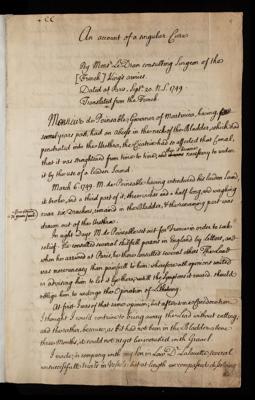 An account of a singular Cure
By Monsr. Le Dran consulting Surgeon of the
[French] King's armies.
Dated at Paris, Sept. 20. N.S. 1749.
Translated from the French.
Monsieur de Poinsable, Governor of Martinico, having
some years past, had an abscess in the neck of the Bladder, which had
penetrated into the Urethra, the Cicatrix had so affected that Canal,
that it was straightened from time to time, and necessary to widen
it by the use of a leaden sound.
March 6. 1749. M. de Poinsable having introduced his leaden sound,
it broke, and a third part of it, three inches and a half long, and weighing
six drachms, remained in the Bladder, & the remaining part was
drawn out of the Urethra.
In eight days M. de Poinsable set out for France in order to seek
relief. He consulted several skilfull persons in England by letters, and
when he arrived at Paris, he there consulted several others. Their
was unnecessary than painfull to him; whereas all opinions united
in advising him to let it lye there, untill the Symptoms it caused should
oblige him to undergo the Operation of Lithotomy.
At first I was of that same opinion; but after
I thought I would contrive to bring away the lead without cutting,
and the rather, because, as it had not been in the Bladder above
three Months, it could not yet be crusted with Gravel.
I made, in company with my Son in Law Dr. Lalouette, several
unsuccessfull trials in Vessels; but at length we compassed